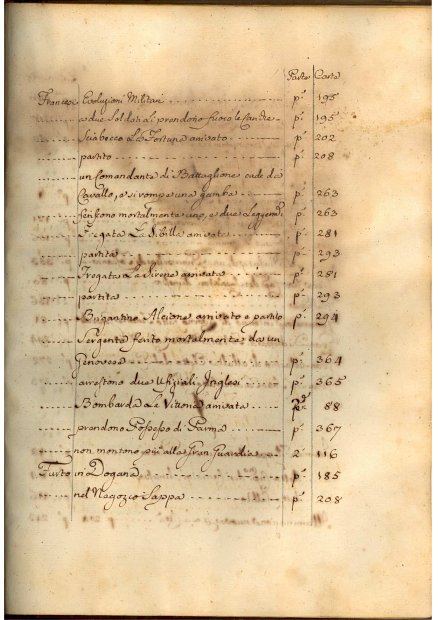 Parte Carte
Francesi Evoluzioni Militari p.ª 195
a due Soldati prendono fuoco le p.ª 195
Sciabecco La Fortuna arrivato p.ª 202
partito p.ª 208
un Comandante di Battaglione cade da
Cavallo, e si rompe una gamba p.ª 263
feriscono mortalmente uno, e due Leggerm.te p.ª 263
Fregata La Sibilla arrivata p.ª 281
partita p.ª 293
Fregata La Sirene arrivata p.ª 281
partita p.ª 293
Brigantino Alcione arrivato e partito p.ª 294
Sergente ferito mortalmente da un
Genovese p.ª 364
arrestono due Ufiziali Inglesi p.ª 365
Bombarda La Vittoria arrivata 88
prendono Possesso di Parma p.ª 367
non montono più alla Gran Guardia 2.ª 116
Furto in Dogana p.ª 185
nel Negozio Sappa p.ª 208